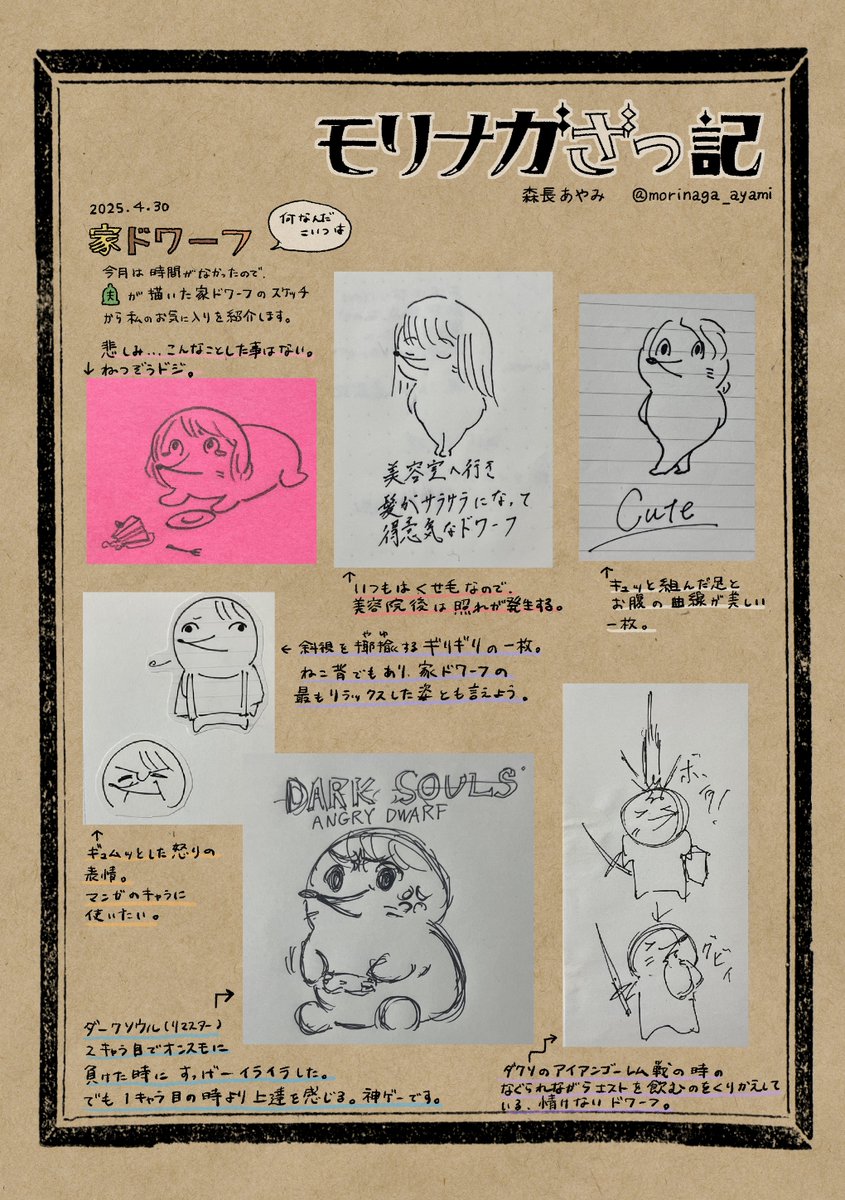 モリナガざっ記
森長あやみ @morinaga_ayami
2025.4.30
家ドワーフ
何なんだ
こいつは
今月は時間がなかったので、
夫が描いた家ドワーフのスケッチ
から私のお気に入りを紹介します。
悲しみ…こんなことした事はない。
↓ねつぞうドジ。
美容室へ行き
髪がサラサラになって
得意気なドワーフ
Cute
↑いつもはくせ毛なので、
美容院後は照れが発生する。
↑キュッと組んだ足と
お腹の曲線が美しい
一枚。
←斜視を揶揄するギリギリの一枚。
やゆ
ねこ背でもあり、家ドワーフの
最もリラックスした姿とも言えよう。
↑
ギュムッとした怒りの
表情。
マンガのキャラに
使いたい。
DARK SOULS
ANGRY DWARF
ボータ!
↓
グビィ
ダークソウル(リマスター)
2キャラ目でオンスモに
負けた時にすっげーイライラした。
でも1キャラ目の時より上達を感じる。神ゲーです。
ダクソのアイアンゴーレム戦の時の
なぐられながらエストを飲むのをくりかえして
いる、情けないドワーフ。